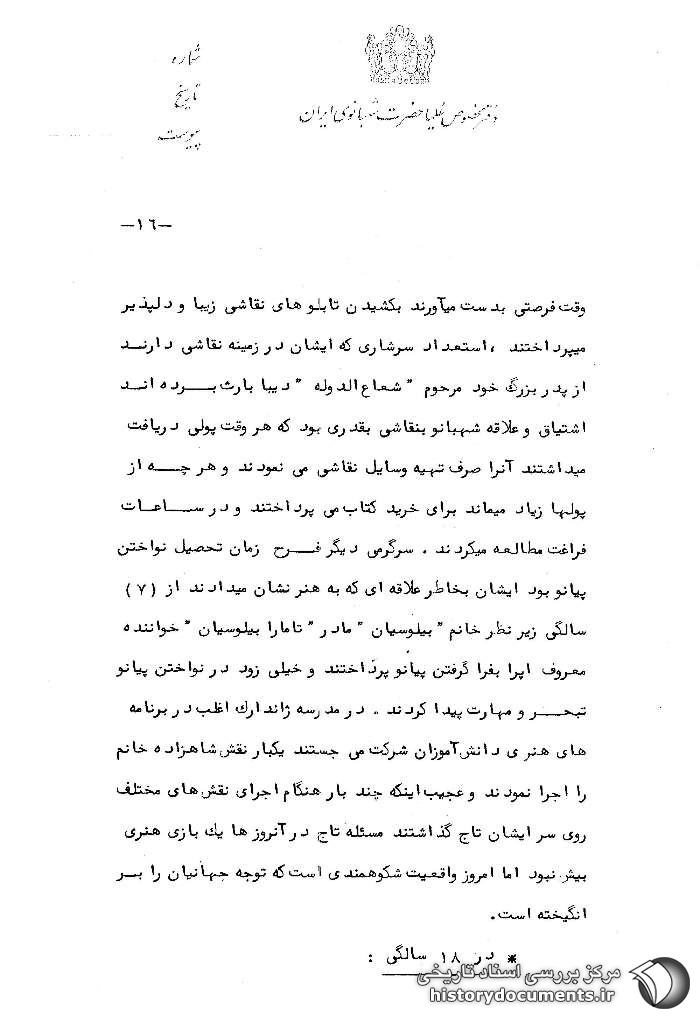 شماره
تاریخ
پیوست
دفتر مخصوص علیاحضرت شهبانوی ایران
-۱٦-
وقت فرصتی بدست میآورند بکشیدن تابلو های نقاشی زیبا و دلپذیر
میپرداختند ،استعداد سرشاری که ایشان در زمینه نقاشی دارنـد
از پدر بزرگ خود مرحوم "شعاع الدوله" دیبا بارث بـــرده انـد
اشتیاق و علاقه شهبانو بنقاشی بقدری بود که هر وقت پولی دریافت
میداشتند آنرا صرف تهیه وسایل نقاشی می نمودند و هر چـــه از
پولها زیاد میماند برای خرید کتاب می پرداختند و در ســـاعـات
فراغت مطالعه میکردند . سرگرمی دیگر فـــرح زمان تحصیل نواختن
پیانو بود ایشان بخاطر علاقه ای که به هنر نشان میدادند از (۷)
سالگی زیر نظر خانم "بیلوسیان" مادر "تامارا بیلوسیان" خواننده
معروف اپرا بفرا گرفتن پیانو پرداختند و خیلی زود در نواختن پیانو
تبحــر و مهارت پیدا کردند . در مدرسه ژاندارك اغلب در برنامه
های هنری دانش آموزان شرکت می جستند یکبار نقش شاهزاده خانم
را اجرا نمودند و عجیب اینکه چند بار هنگام اجرای نقش های مختلف
روی سر ایشان تاج گذاشتند مسئله تاج در آنروز ها یك بازی هنری
بیش نبود اما امروز واقعیت شکوهمندی است که توجه جهانیان را بــر
انگیخته است.
* در ۱۸ سالگی :
مرکز بررسی اسناد تاریخی
historydocuments.ir